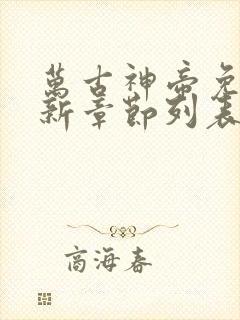 萬古神帝免
新章節列表
商海春